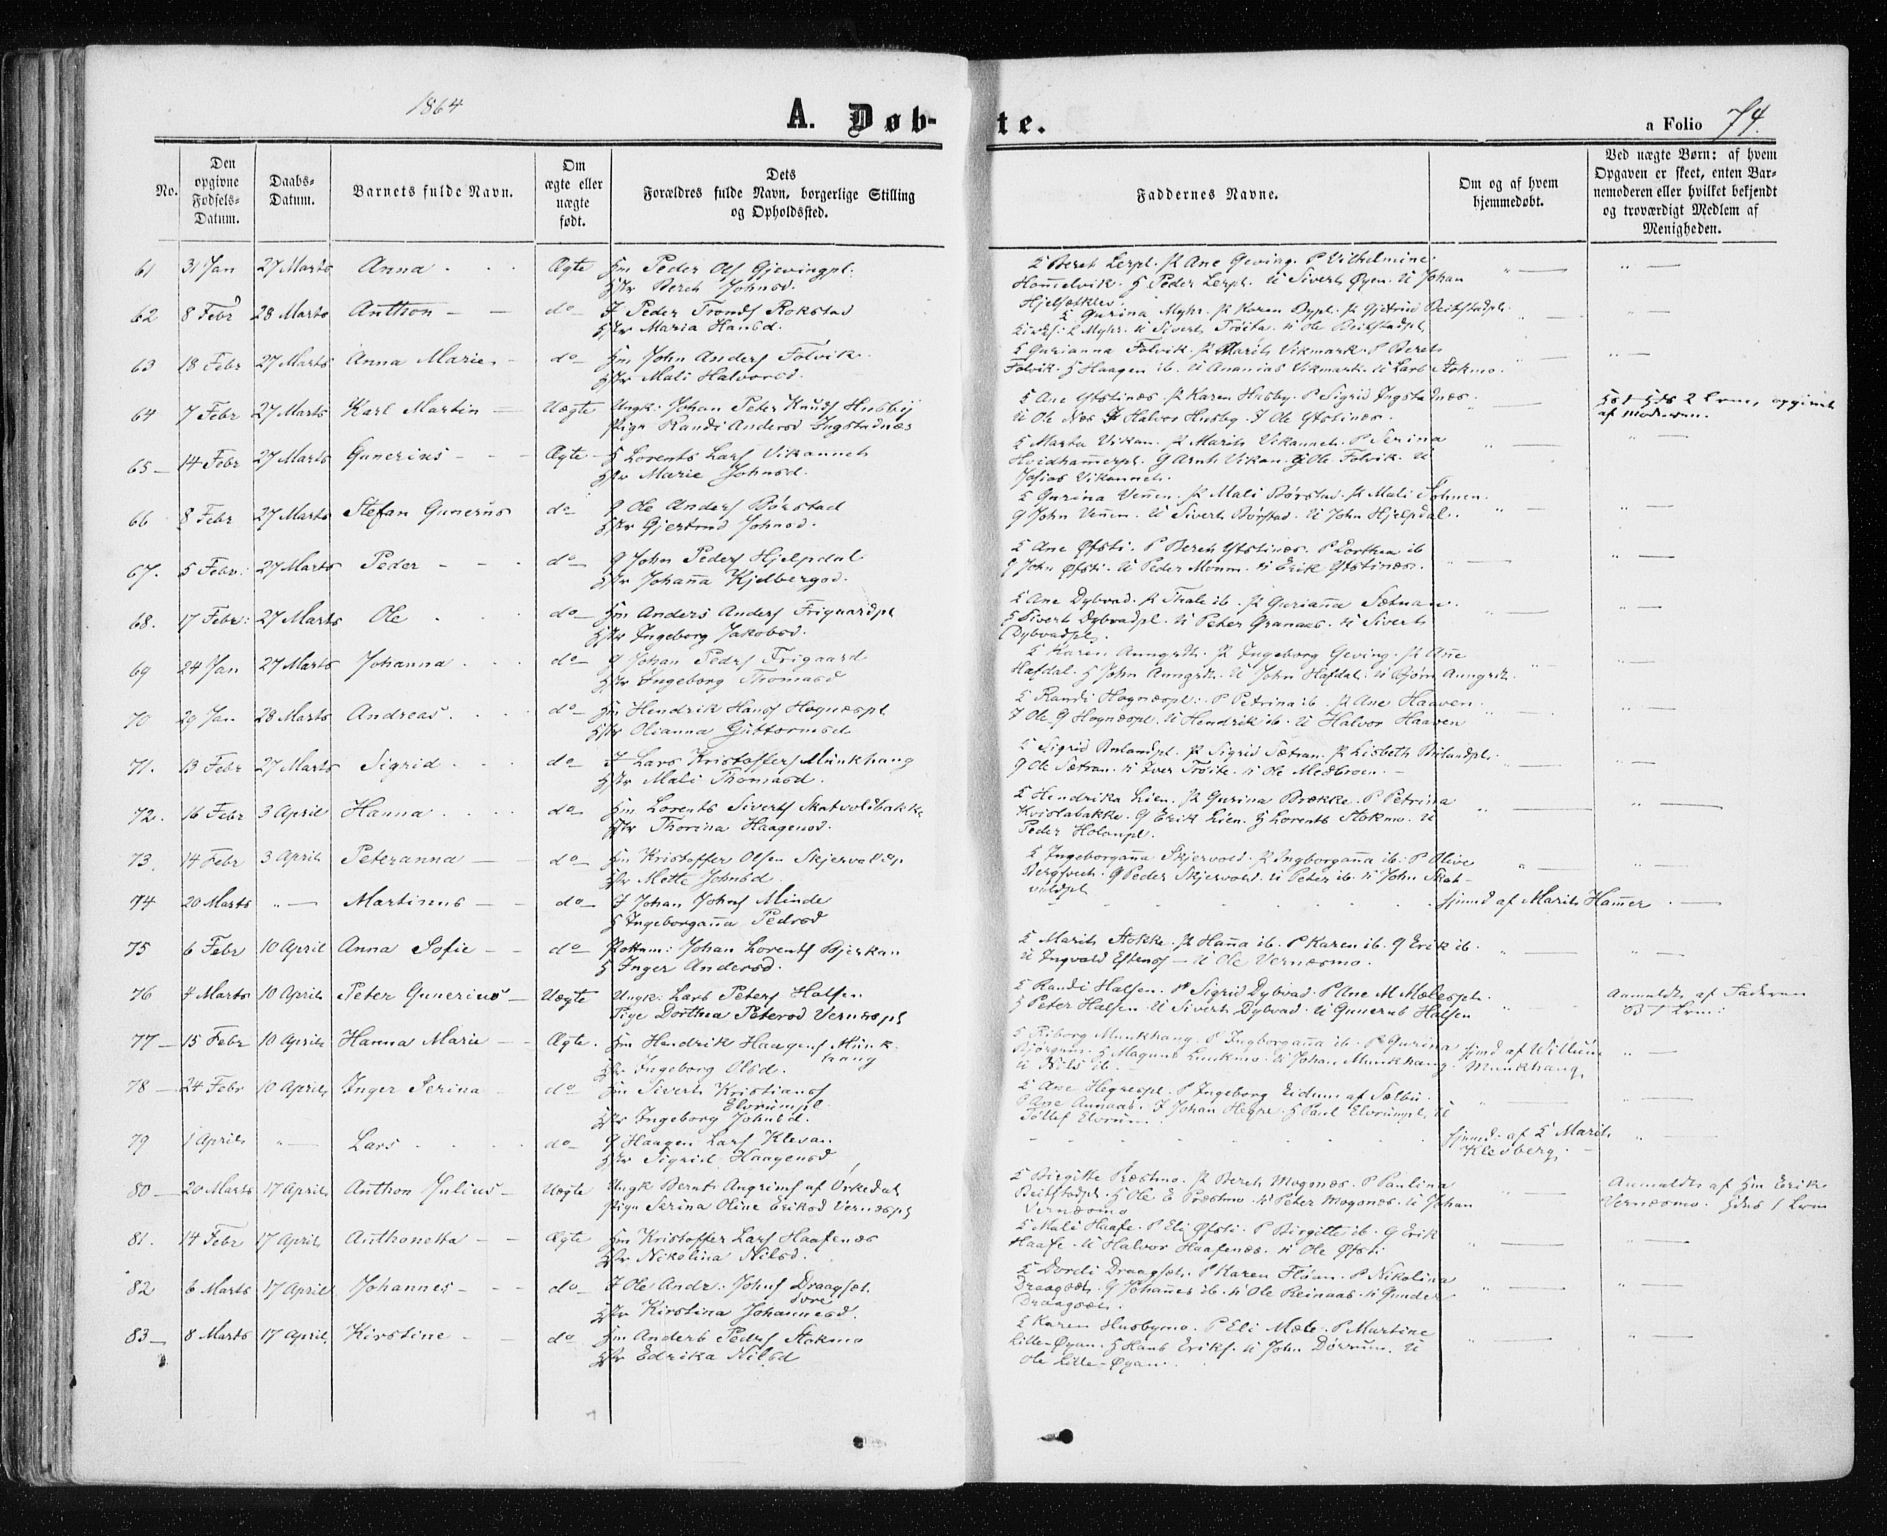 1864
A. Døb-
te.
a Folio 74.
No.
Den
opgivne
Fødsels-
Datum.
Daabs-
Datum.
Barnets fulde Navn.
Om
ægte eller
uægte
født.
Dets
Forældres fulde Navn, borgerlige Stilling
og Opholdssted.
Faddernes Navne.
Om og af hvem
hjemmedøbt.
Ved uægte Børn: af hvem
Opgaven er skeet, enten Bar-
nemoderen eller hvilket bekjendt
og troværdigt Medlem af
Menigheden.
61 31 Jan 27 Marts Anna Ægte Hm Peder Ols Gjevingpl.
Hstr Bereth Johnsd.
K Bereth Lerpl. P Ane Geving. P Vilhelmine
Hommelvik. H Peder Lerpl. U Siverth Øyen. U Johan
62 8 Febr 28 Marts Anthon do I Peder Tronds Rokstad
Hstr Maria Hansd.
K Gurina Myhr. P Karen Bypl. P Gjetrud Beitstadpl.
U Siverth Trøite. U Ole Beitstadpl.
63 18 Febr 27 Marts Anna Marie do Hm John Anders Folvik
Hstr Mali Halvorsd.
K Gurianna Folvik. P Marith Vikmark. P Bereth
Folvik. H Haagen ib. U Ananias Vikmark. U Lars Stokmo.
64 7 Febr 27 Marts Karl Martin Uægte Ungk: Johan Peter Knuds Husby
Pige Randi Andersd Ingstadnæs
K Ane Ystinæs. P Karen Husby. P Sigrid Ingstadnæs.
U Ole Næs. I Halvor Husby. I Ole Ystinæs.
af Moderen.
65 14 Febr 27 Marts Gunerius Ægte H Lorents Lars Vikanneth
Hstr Marie Johnsd.
K Marta Vikan. P Marith Vikanneth. P Serina
Hvidhammerpl. G Arnt Vikan. H Ole Folvik. U
Josias Vikanneth.
66 8 Febr 27 Marts Stefan Gunerius do G Ole Anders Børstad
Hstr Gjertrud Johnsd.
K Gurina Vennen. P Mali Børstad. P Mali
G John Vennen. U Siverth Børstad. U John Hjelpdal.
67. 5 Febr: 27 Marts Peder do G John Peders Hjelpdal
Hstr Johanna Kjelbergsd.
K Ane Øfsti. P Bereth Ystinæs. P Dorthea ib
G John Øfsti. U Peder Monum. U Erik Ystinæs.
68. 17 Febr: 27 Marts Ole do Hm Anders Anders Frigaardpl
Hstr Ingeborg Jakobsd.
K Ane Dybvad. P Thale ib. P Gurianna Sætnan.
H Siverth Dybvadpl. U Peter Granaas. U Siverth
Dybvadpl.
69 24 Jan 27 Marts Johanna do G Johan Peders Frigaard
Hstr Ingeborg Thomasd
K Karen Aungrth. P Ingeborg Geving. P Ane
Hafdal. H John Aungrth. U John Hafdal. U Bjørn Aungrth.
70 29 Jan 28 Marts Andreas do Hm Hendrik Hans Hognæspl
Hstr Olianna Guttormsd
K Randi Hognæspl. P Petrina ib. P Ane Haaven
I Ole G Hognæspl. U Hendrik ib. U Halvor Haaven
71. 13 Febr 27 Marts Sigrid do I Lars Kristoffers Munkhaug
Hstr Mali Thomasd.
P Sigrid Sætran. P Lisbeth
G Ole Sætran. U Iver Trøite. U Ole Mæbroen.
72. 16 Febr 3 April Hanna do Hm Lorents Siverts Skatvoldbakk
Hstr Thorina Haagensd.
K Hendrika Lien. P Gurina Brække. P Petrina
Kvislabakke. G Erik Lien. H Lorents Stokmo. U
Peder Holanpl.
73. 14 Febr 3 April Peteranna do Hm Kristoffer Olsen Skjervoldpl
Hstr Mette Johnsd.
K Ingeborganna Skjervold. P Ingborganna ib: P Olive
G Peder Skjervold. U Peter ib. U John Skat-
voldpl
74 20 Marts Martinus do I Johan Johns Minde
H Ingeborganna Pedrsd
hjemd af Marith Hammer
75 6 Febr 10 April Anna Sofie do Johan Lorents Bjerkan
H Inger Andersd.
K Marith Stokke. P Hanna ib. P Karen ib. G Erik ib.
U Ingvald Estens U Ole Vernæsmo.
76 4 Marts 10 April Peter Gunerius Uægte Ungk: Lars Peters Halsen
Pige Dorthea Petersd Vernæspl
K Randi Halsen. P Sigrid Dybvad. P Ane M Mælespl.
H Peter Halsen. U Siverth Dybvad. U Gunerus Halsen
Anmeldt af Faderen
77 15 Febr 10 April Hanna Marie Ægte. Hm Hendrik Haagens Munk-
haug
Hstr Ingeborg Olsd.
K Riborg Munkhaug. P Ingborganna ib. P Gurina
H Magnus U Johan Munkhaug.
U Nils ib.
hjmd af Willum
Munkhaug.
78 24 Febr 10 April Inger Serina do Hm Siverth Kristians
Elvrumpl
Hstr Ingeborg Johnsd.
K Ane Hegrespl. P Ingeborg Eidum af Sælbu
P Ane Annaas. I Johan Hegre. H Paul Elvrumpl. U
Tollef Elvrum.
79 1 April Lars do G Haagen Lars Klevan
Hstr Sigrid Haagensd
hjemd. af K Marith
Klevberg.
80 20 Marts 17 April Anthon Julius Uægte Ungk Bernt Angrims af Orkedal
Pige Serina Oline Eriksd Vernæspl
K Birgitte Præstmo. P Bereth Mogonæs. P Paulina
Beitstadpl. H Ole E Præstmo. U Peter Mogonæs. U Johan
Vernæsmo
Anmeldt af Hm Erik
Vernæsmo.
81. 14 Febr 17 April Anthonetta Ægte Hm Kristoffer Lars Haafenæs
Hstr Nikolina Nilsd.
K Mali Haafe. P Eli Øfsti. P Birgitte ib. G Erik
Haafe. U Halvor Haafenæs. U Ole Øfsti.
82 6 Marts 17 April Johannes do I Ole Andr: Johns Draagset.
øvre
Hstr Kirstina Johannesd.
K Dordi Draagset. P Karen Floan. P Nikolina
Draagset. G Johannes ib. U Ole Reinaas. U Gunder
Draagset.
83 8 Marts 17 April Kirstine do Hm Anders Peders Stokmo
Hstr Edrika Nilsd
K Karen Husbymo. P Eli Mæle. P Martine
Lille-Øyan. H Hans Eriks. U John Dørrum. U
Ole Lille-Øyan.